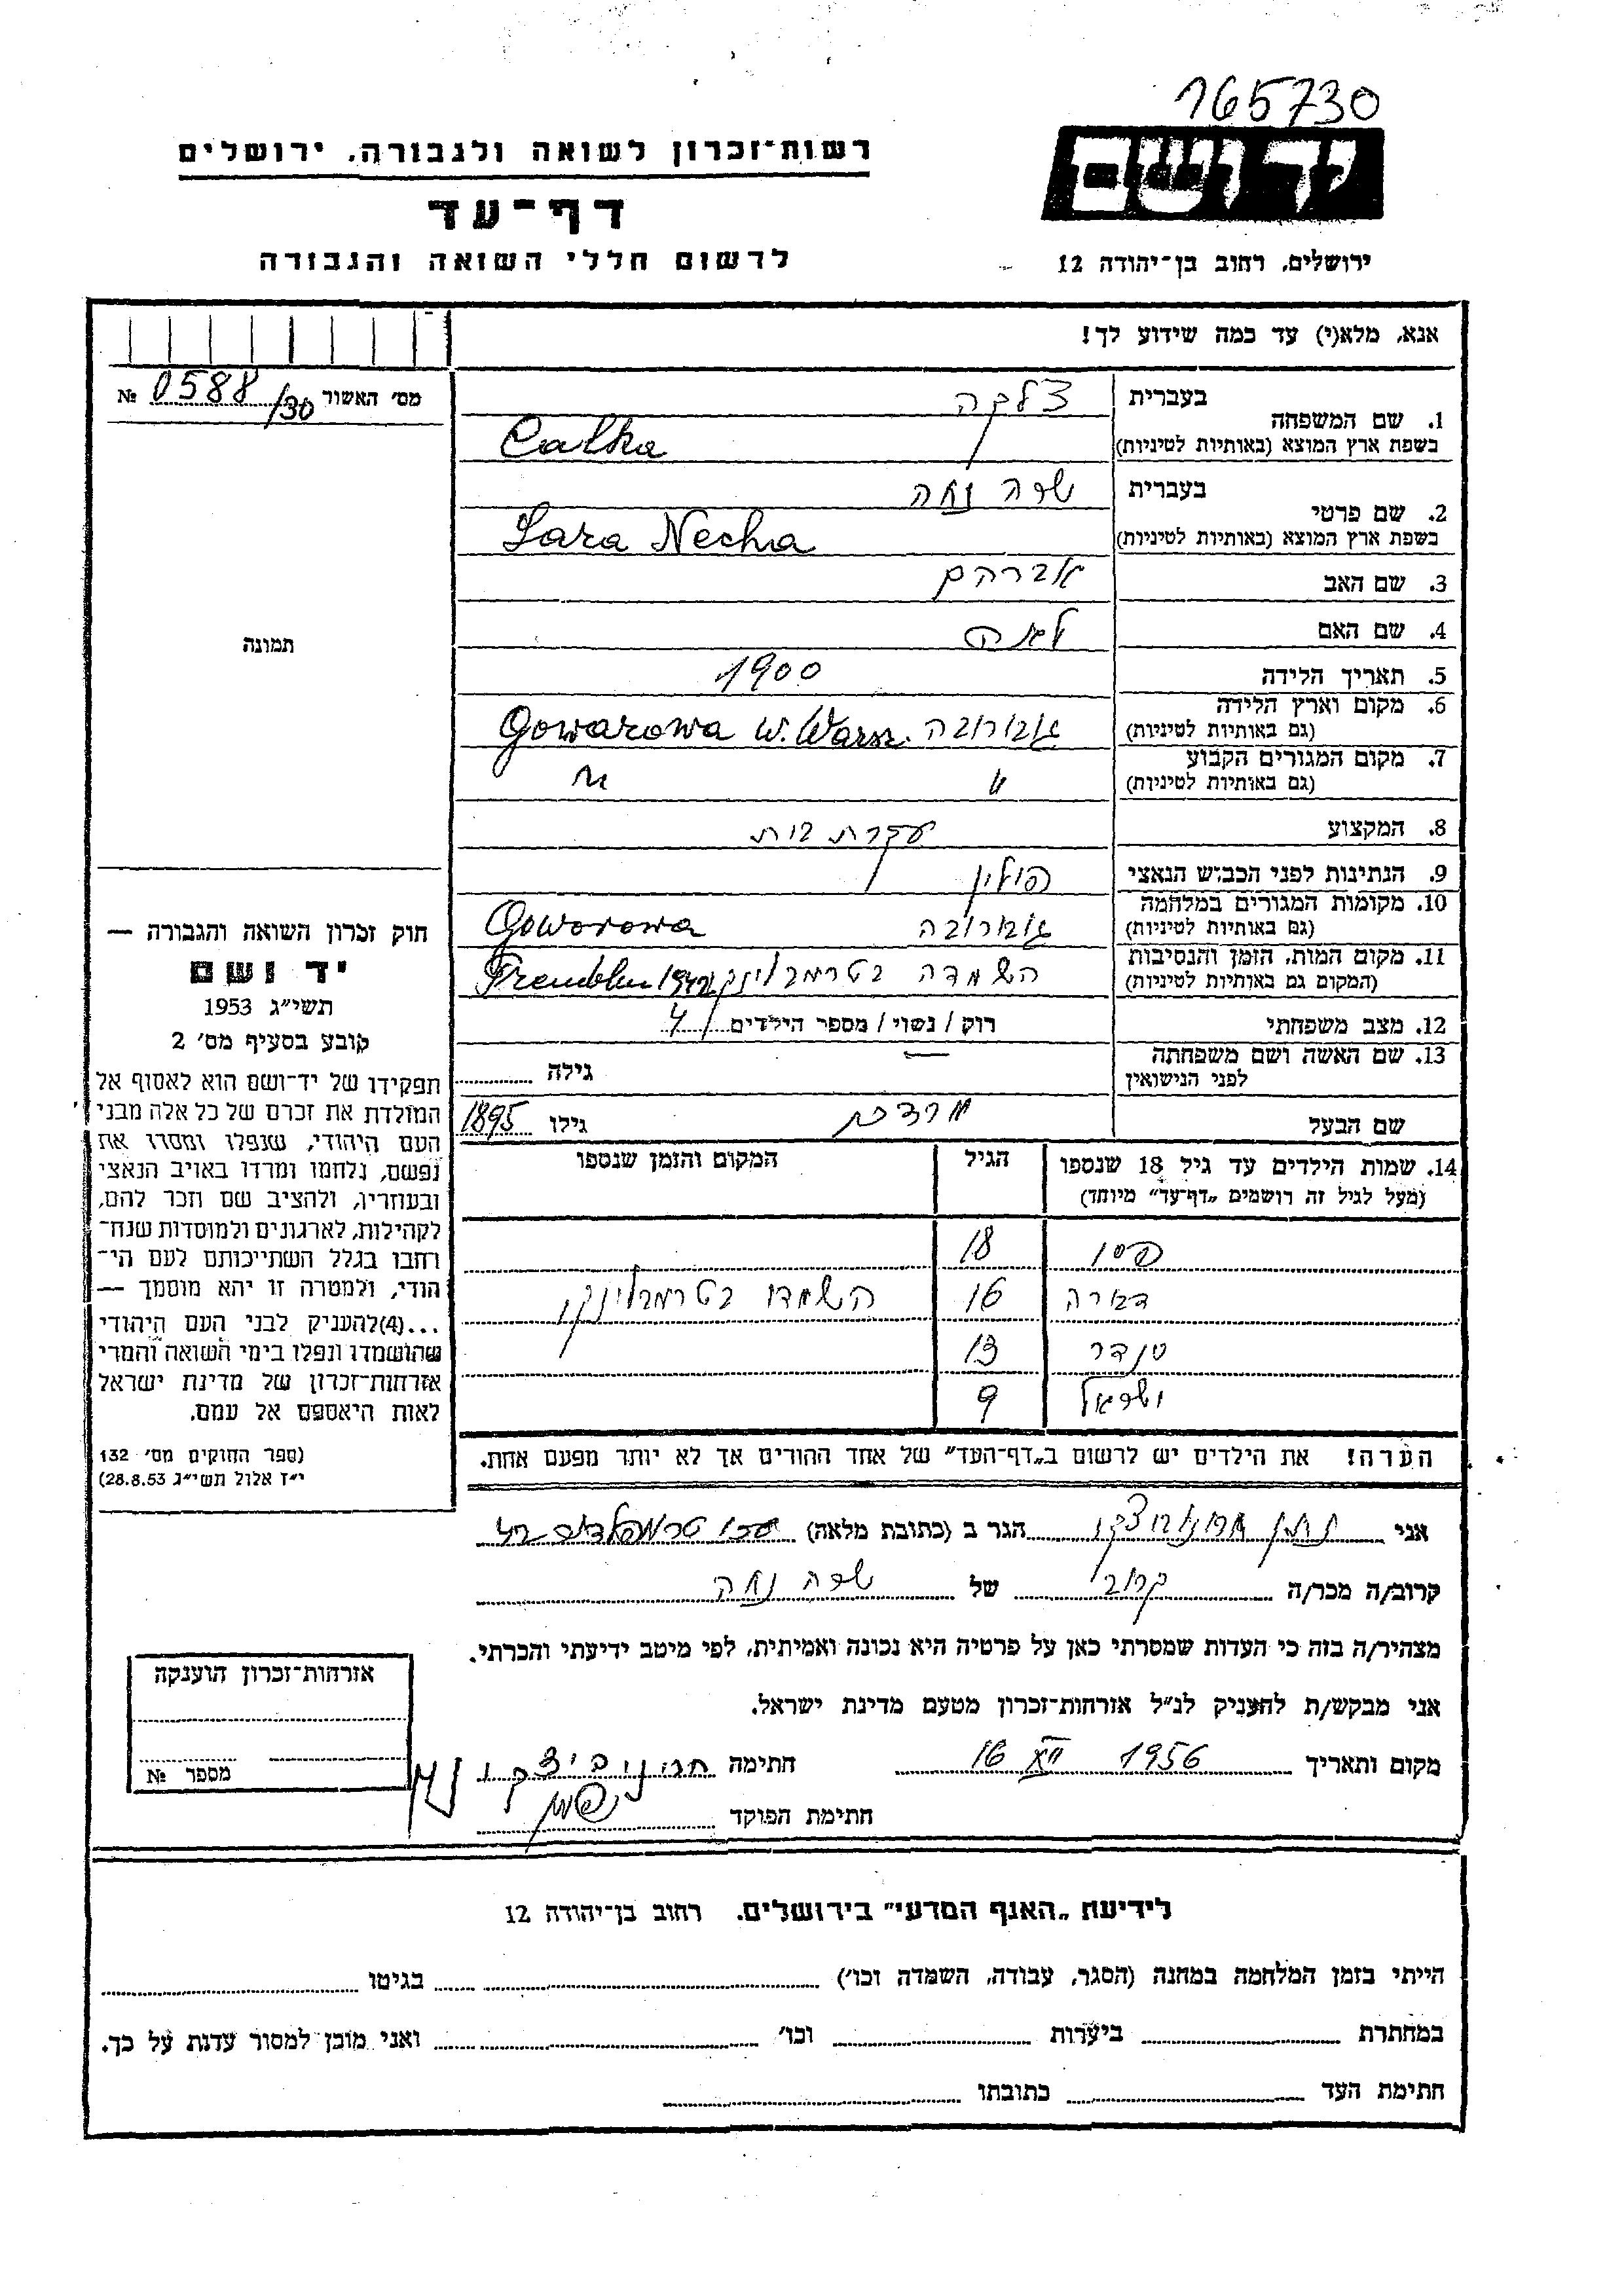 165730
יד ושם
רשות־זכרון לשואה ולגבורה, ירושלים
דף־עד
לרשום חללי השואה והגבורה
ירושלים, רחוב בן־יהודה 12
אנא, מלא(י) עד כמה שידוע לך!
מס' האשור 0588/30 №
1. שם המשפחה
בעברית צלקה
בשפת ארץ המוצא (באותיות לטיניות) Calka
2. שם פרטי
בעברית שרה נחה
בשפת ארץ המוצא (באותיות לטיניות) Sara Necha
3. שם האב אברהם
4. שם האם לאה
5. תאריך הלידה 1900
6. מקום וארץ הלידה
(גם באותיות לטיניות) גוברובה Gowarowa w. Warsz.
7. מקום המגורים הקבוע
(גם באותיות לטיניות) " "
8. המקצוע עקרת בית
9. הנתינות לפני הכבוש הנאצי פולין
10. מקומות המגורים במלחמה
(גם באותיות לטיניות) גוברובה Goworowa
11. מקום המות, הזמן והנסיבות
(המקום גם באותיות לטיניות) השמדה בטרמבלינקי 1942
12. מצב משפחתי רוק / נשוי / מספר הילדים 4
13. שם האשה ושם משפחתה
לפני הנישואין — גילה
שם הבעל מרדכי גילו 1895
14. שמות הילדים עד גיל 18 שנספו
(מעל לגיל זה רושמים „דף־עד" מיוחד)
הגיל
המקום והזמן שנספו
18
דבורה 16 השמדו בטרמבלינקי
סנדר 13
ישראל 9
הערה! את הילדים יש לרשום ב„דף־העד" של אחד ההורים אך לא יותר מפעם אחת.
תמונה
חוק זכרון השואה והגבורה —
יד ושם
תשי"ג 1953
קובע בסעיף מס' 2
תפקידו של יד־ושם הוא לאסוף אל
המולדת את זכרם של כל אלה מבני
העם היהודי, שנפלו ומסרו את
נפשם, נלחמו ומרדו באויב הנאצי
ובעוזריו, ולהציב שם וזכר להם,
לקהילות, לארגונים ולמוסדות שנח־
רחבו בגלל השתייכותם לעם הי־
הודי, ולמטרה זו יהא מוסמך —
...(4)להעניק לבני העם היהודי
שהושמדו ונפלו בימי השואה והמרי
אזרחות־זכרון של מדינת ישראל
לאות היאספם אל עמם.
(ספר החוקים מס' 132
י"ז אלול תשי"ג 28.8.53)
אני נתן הגר ב (כתובת מלאה)
קרוב/ה מכר/ה קרובי של שרה נחה
מצהיר/ה בזה כי העדות שמסרתי כאן על פרטיה היא נכונה ואמיתית, לפי מיטב ידיעתי והכרתי.
אני מבקש/ת להעניק לנ"ל אזרחות־זכרון מטעם מדינת ישראל.
מקום ותאריך 16 1956 חתימה
חתימת הפוקד
אזרחות־זכרון הוענקה
מספר №
לידיעת „האגף המדעי" בירושלים. רחוב בן־יהודה 12
הייתי בזמן המלחמה במחנה (הסגר, עבודה, השמדה וכו') בגיטו
במחתרת ביערות וכו' ואני מוכן למסור עדות על כך.
חתימת העד כתובתו